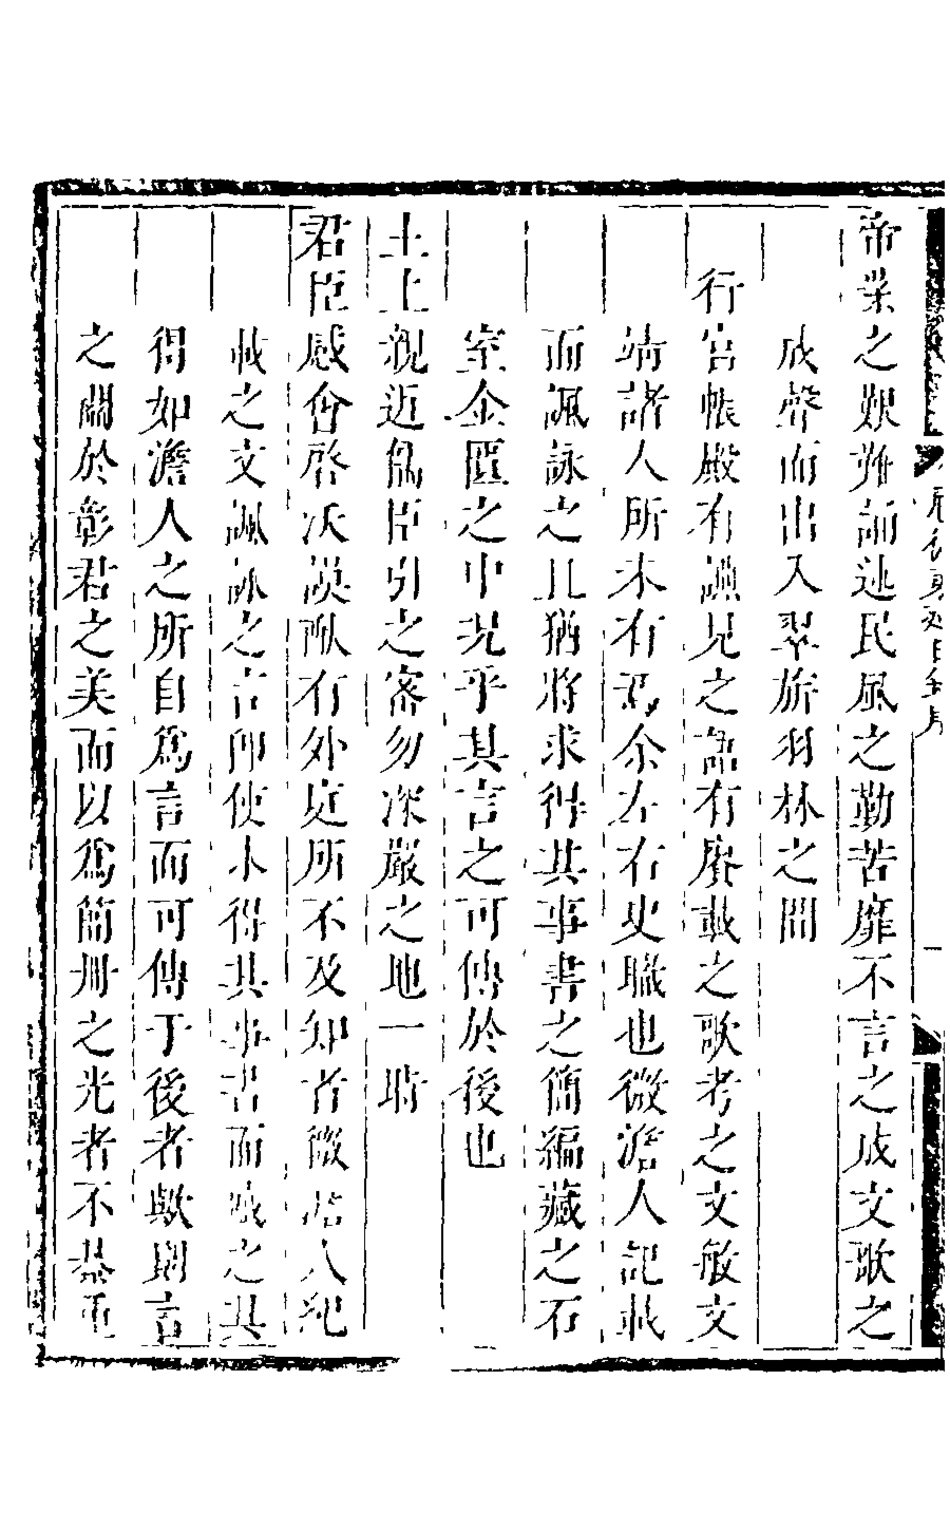 帝業之艱難誦述民風之勤苦靡不言之成文歌之
成聲而出入翠旂羽林之間
行宮帳殿有讌見之語有賡載之歌考之文敏文
靖諸人所未有焉余左右史職也微澹人記載
而諷詠之且猶將求得其事書之簡編藏之石
室金匱之中況乎其言之可傳於後也
主上親近儒臣引之密勿深嚴之地一時
君臣感會啓沃謨猷有外廷所不及知者微澹人紀
載之文諷詠之言卽使求得其事書而藏之其
得如澹人之所自爲言而可傳于後者歟則言
之關於彰君之美而以爲簡冊之光者不綦重